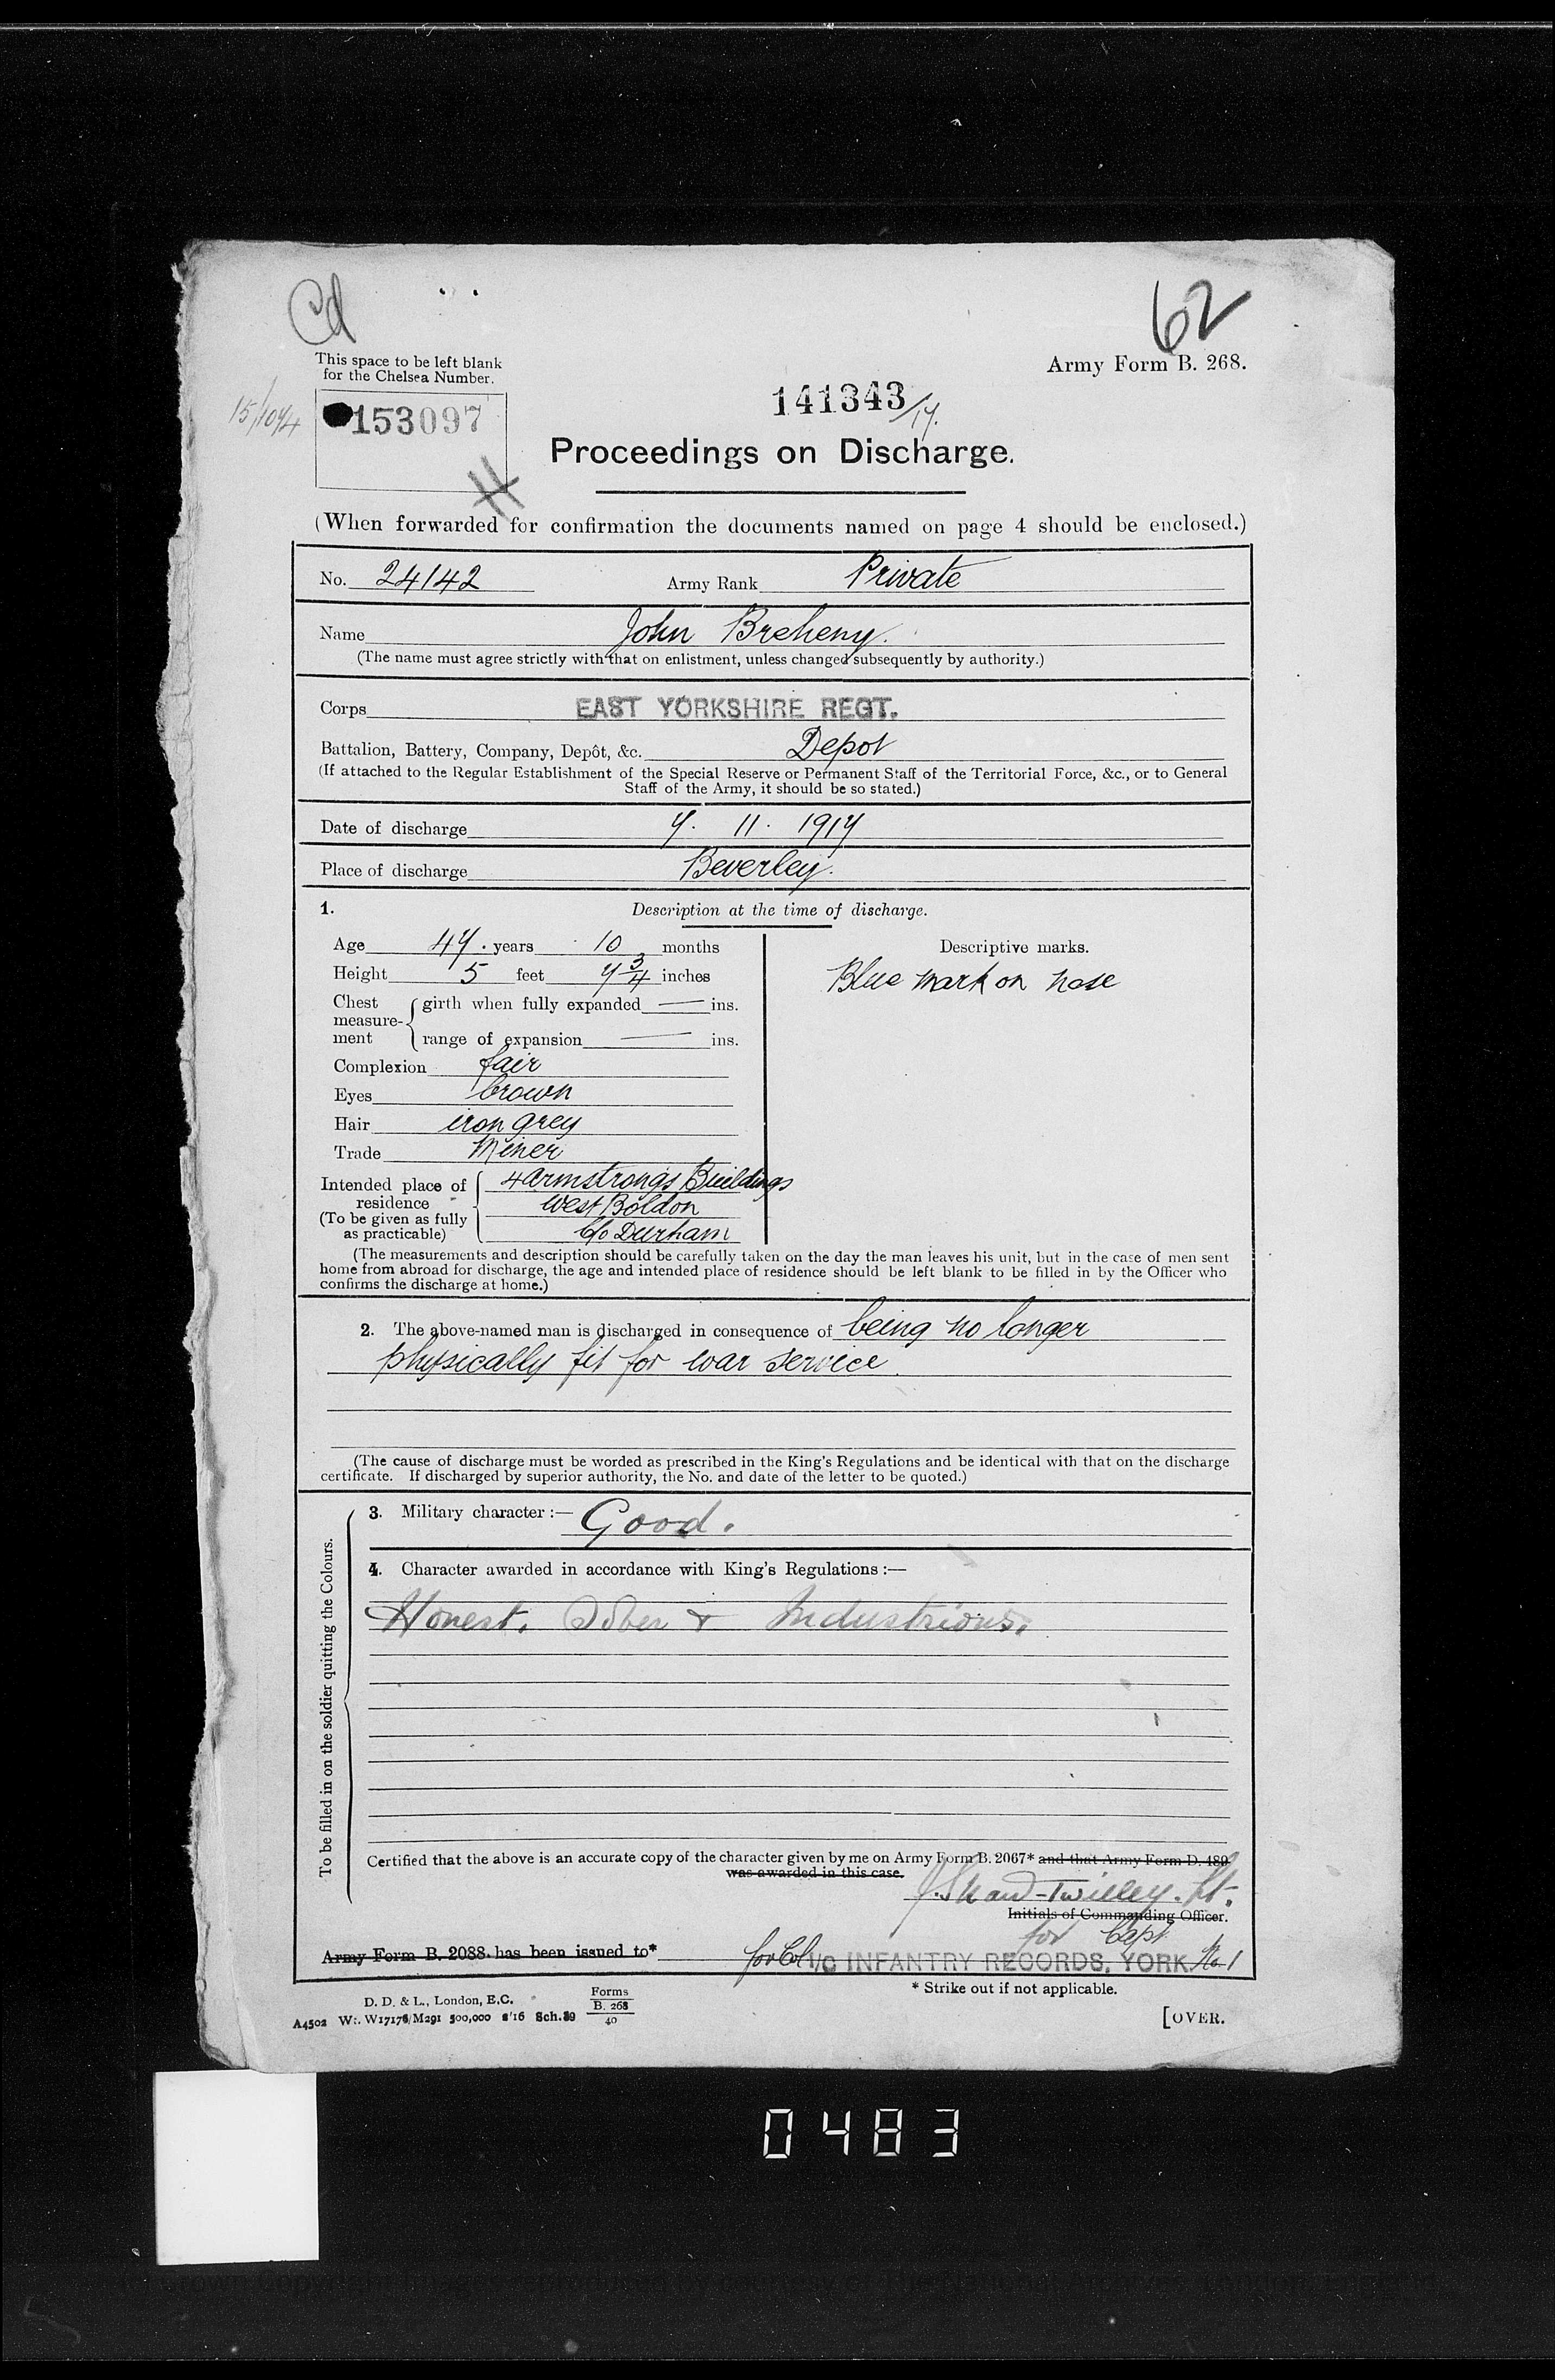 Cd
62
This space to be left blank
for the Chelsea Number.
Army Form B. 268.
141343/17.
153097
Proceedings on Discharge.
(When forwarded for confirmation the documents named on page 4 should be enclosed.)
No. 24142 Army Rank Private
Name John Breheny.
(The name must agree strictly with that on enlistment, unless changed subsequently by authority.)
Corps EAST YORKSHIRE REGT.
Battalion, Battery, Company, Depôt, &c. Depot
(If attached to the Regular Establishment of the Special Reserve or Permanent Staff of the Territorial Force, &c., or to General
Staff of the Army, it should be so stated.)
Date of discharge 7. 11. 1917
Place of discharge Beverley.
1. Description at the time of discharge.
Age 47. years 10 months
Descriptive marks.
Height 5 feet 7 3/4 inches
Blue mark on nose
Chest measurement { girth when fully expanded — ins.
range of expansion — ins.
Complexion fair
Eyes brown
Hair iron grey
Trade Miner
Intended place of residence (To be given as fully as practicable) { 4 Armstrongs Buildings
West Boldon
C/o Durham
(The measurements and description should be carefully taken on the day the man leaves his unit, but in the case of men sent
home from abroad for discharge, the age and intended place of residence should be left blank to be filled in by the Officer who
confirms the discharge at home.)
2. The above-named man is discharged in consequence of being no longer
physically fit for war service.
(The cause of discharge must be worded as prescribed in the King's Regulations and be identical with that on the discharge
certificate. If discharged by superior authority, the No. and date of the letter to be quoted.)
To be filled in on the soldier quitting the Colours.
3. Military character :— Good.
4. Character awarded in accordance with King's Regulations :—
Honest. Sober & Industrious.
Certified that the above is an accurate copy of the character given by me on Army Form B. 2067* and that Army Form D. 489
was awarded in this case.
J. Shaw-Twilley. Lt.
Initials of Commanding Officer.
for Capt
Army Form B. 2088 has been issued to* for Col I/C INFANTRY RECORDS, YORK. No. 1
* Strike out if not applicable.
D. D. & L., London, E.C.
Forms
B. 268
40
A4502 Wt. W17178/M291 500,000 8/16 Sch. 39
[OVER.
0483
(c) Crown Copyright Images reproduced by courtesy of The National Archives, London, England.